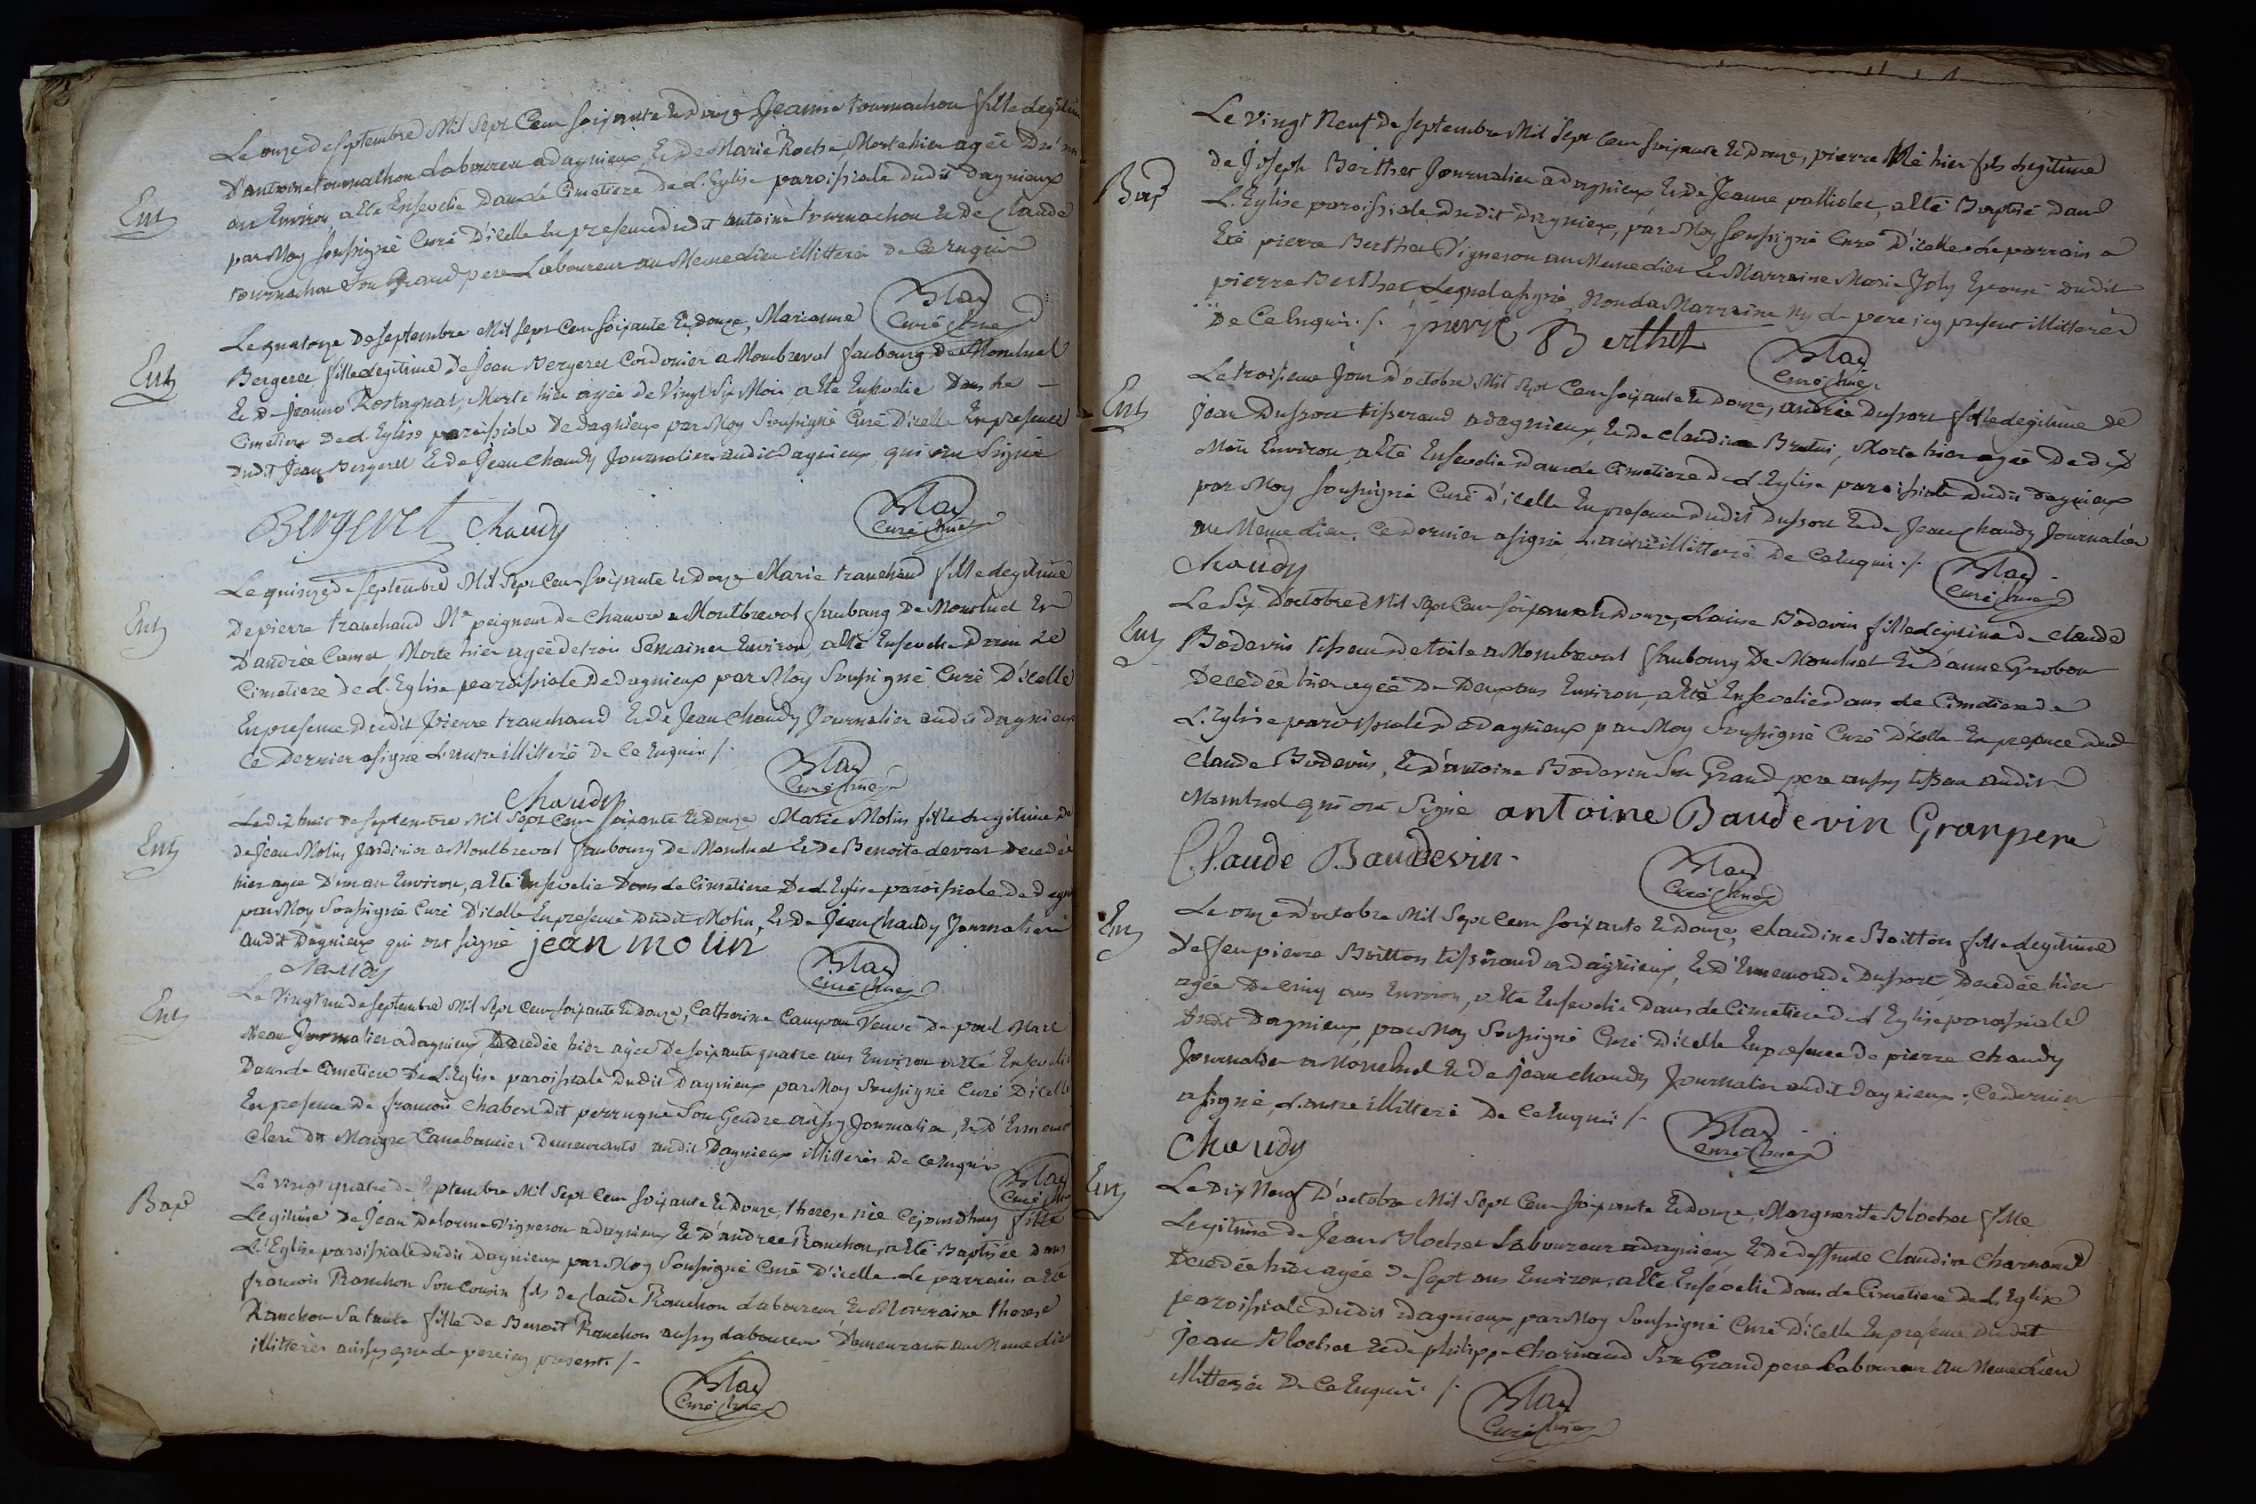 Le onze de septembre Mil Sept Cent soixante et douze Jeanne tournachon fille legitime
Ent
D'antoine tournachon Laboureur a dagnieux, et de Marie Roche, Morte hier agée D'un
an Environ a eté Ensevelie Dans le Cimetiere de L'Eglise paroissiale dudit dagnieux
par Moy soussigné Curé D'icelle En presence dudit antoine tournachon et de Claude
tournachon Son Grand pere Laboureur au Meme Lieu illitteré de ce Enquis
Blay
Curé
Le quatorze De septembre Mil Sept Cent soixante et douze, Marianne
Ent
Bergeret fille legitime de Jean Bergeret Cordonier a Monbreval faubourg de Montluel
et de jeanne Rostagnat, Morte hier agée de Vingt Six Mois a eté Ensevelie Dans le
Cimetiere de L'Eglise paroissiale De dagnieux par Moy Soussigné Curé D'icelle En presence
dudit Jean Bergeret et de Jean Chaudy Journalier audit dagnieux, qui ont Signé
Bergeret Chaudy
Blay
Curé
Le quinze de septembre Mil Sept Cent soixante et douze Marie tranchand fille legitime
Ent
De pierre tranchand Me peigneur de chanvre a Montbreval faubourg de Montluel et
D'andrée Morte hier agée de trois Semaines Environ, a eté Ensevelie Dans Le
Cimetiere de L'Eglise paroissiale de dagnieux par Moy Soussigné Curé D'icelle
En presence dudit pierre tranchand et de Jean Chaudy Journalier audit dagnieux
Ce Dernier a signé L'autre illitteré De ce Enquis /.
Blay
Curé
Chaudy
Le dix huit de septembre Mil Sept Cent soixante et douze Marie Molin fille Legitime de
Ent
de Jean Molin Jardinier a Montbreval faubourg De Montluel et de Benoite Decedée
hier agée D'un an Environ, a eté Ensevelie Dans Le Cimetiere De L'Eglise paroissiale de
par Moy Soussigné Curé D'icelle En presence Dudit Molin, et de Jean Chaudy Journalier
audit Dagnieux qui ont signé jean molin
Chaudy
Blay
Curé
Le Vingt un de septembre Mil Sept Cent soixante et douze, Catherine Veuve De paul
Ent
Journalier a dagnieux, Decedée hier agée De soixante quatre ans Environ a eté Ensevelie
Dans le Cimetiere De L'Eglise paroissiale Dudit Dagnieux par Moy Soussigné Curé D'icelle
En presence De francois Chabert dit perruque Son Gendre aussy Journalier, et d'
Clerc dit Maigre Demeurants audit Dagnieux illitterés De ce Enquis
Blay
Curé
Le vingt quatre de septembre Mil Sept Cent soixante et Douze, therese née cejourdhuy fille
Bap
Legitime De Jean Delorme Vigneron a dagnieux et D'andrée Ranchon, a eté Baptisée Dans
L'Eglise paroissiale dudit Dagnieux par Moy Soussigné Curé D'icelle Le parrain a eté
francois Ranchon Son Cousin fils de Claude Ranchon Laboureur et Marraine therese
Ranchon Sa tante fille de Benoit Ranchon aussy Laboureur Demeurants au Meme Lieu
illitterés aussy que le pere icy present /.
Blay
Curé
Le vingt Neuf De septembre Mil Sept Cent Soixante et Douze, pierre Né hier fils Legitime
Bap
de Joseph Berthet Journalier a dagnieux et de Jeanne a eté Baptisé Dans
L'Eglise paroissiale Dudit Dagnieux, par Moy Soussigné Curé D'icelle Le parrain a
Eté pierre Berthet Vigneron au Meme Lieu et Marraine Marie Joly Epouse dudit
pierre Berthet Lequel a signé Non La Marraine Ny Le pere icy present illitterés
De ce Enquis /. pierre Berthet
Blay
Curé
Le troisieme Jour D'octobre Mil Sept Cent soixante et Douze, andrée Dussort fille legitime de
Ent
jean Dussort tisserand a dagnieux, et de claudine Morte hier agée De dix
Mois Environ, a eté Ensevelie dans le Cimetiere de L'Eglise paroissiale Dudit dagnieux
par Moy Soussigné Curé D'icelle En presence dudit Dussort et de Jean Chaudy Journalier
au Meme Lieu, Ce Dernier a signé L'autre illitteré De ce Enquis /.
Chaudy
Blay
Curé
Le Six D'octobre Mil Sept Cent soixante et Douze, Louise Bodevin fille Legitime de claude
Ent
Bodevin tisseur de toile a Monbreval faubourg De Montluel et D'anne Grobon
Decedée hier agée De Deux ans Environ, a eté Ensevelie Dans le Cimetiere de
L'Eglise paroissiale De dagnieux par Moy Soussigné Curé D'icelle En presence dudit
Claude Bodevin, et D'antoine Bodevin Son Grand pere aussy audit
Montluel qui ont Signé antoine Baudevin Granpere
Claude Baudevin
Blay
Curé
Le onze d'octobre Mil Sept Cent soixante et douze, claudine Boitton fille legitime
Ent
De feu pierre Boitton tisserand a dagnieux, et D'Ennemonde Dussort, Decedée hier
agée De cinq ans Environ, a eté Ensevelie Dans Le Cimetiere de L'Eglise paroissiale
Dudit Dagnieux, par Moy Soussigné Curé D'icelle En presence De pierre chaudy
Journalier a Montluel et de jean chaudy Journalier audit Dagnieux ; Ce dernier
a signé, L'autre illitteré De ce Enquis /.
Chaudy
Blay
Curé
Le Dix Neuf D'octobre Mil Sept Cent Soixante et Douze, Marguerite Blochet fille
Ent
Legitime de Jean Blochet Laboureur a dagnieux et de deffunte Claudine Charnand
Decedée hier agée De sept ans Environ, a eté Ensevelie Dans Le Cimetiere de L'Eglise
paroissiale Dudit Dagnieux, par Moy Soussigné Curé D'icelle En presence Dudit
jean Blochet et de philippe Charnaud Son Grand pere Laboureur au Meme Lieu
illitterés De ce Enquis /.
Blay
Curé